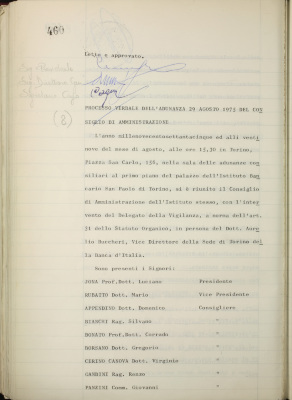 460
Letto e approvato.
(2)
PROCESSO VERBALE DELL'ADUNANZA 29 AGOSTO 1975 DEL CON
SIGLIO DI AMMINISTRAZIONE
L'anno millenovecentosettantacinque ed alli venti
nove del mese di agosto, alle ore 15,30 in Torino,
Piazza San Carlo, 156, nella sala delle adunanze con
siliari al primo piano del palazzo dell'Istituto Ban
cario San Paolo di Torino, si è riunito il Consiglio
di Amministrazione dell'Istituto stesso, con l'inter
vento del Delegato della Vigilanza, a norma dell'art.
21 dello Statuto Organico, in persona del Dott. Aure
lio Burcheri, Vice Direttore della Sede di Torino del
la Banca d'Italia.
Sono presenti i Signori:
JONA Prof.Dott. Luciano Presidente
RUBATTO Dott. Mario Vice Presidente
APPENDINO Dott. Domenico Consigliere
BIAMINI Rag. Silvano "
BONATO Prof.Dott. Corrado "
BORERRO Dott. Gregorio "
CERESO CANOVA Dott. Virginio "
GANDINI Rag. Renzo "
PANSINI Comm. Giovanni "